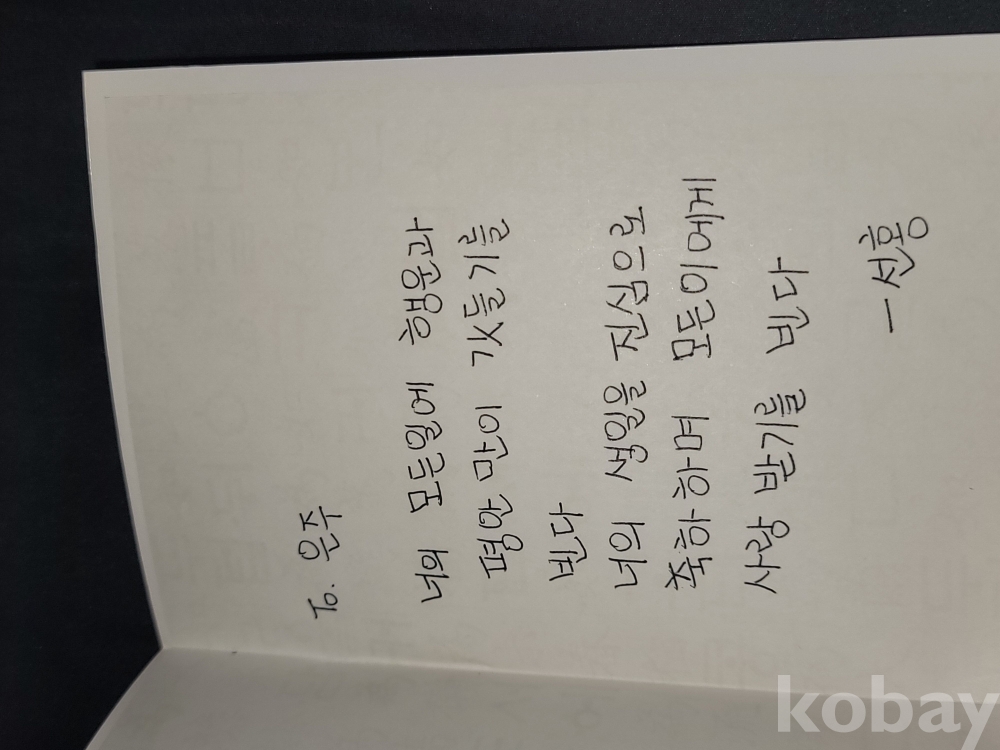 To. 은주
너의 모든일에 행운과
평안 만이 깃들기를
빈다
너의 생일을 진심으로
축하하며 모든이에게
사랑 받기를 빈다
- 선홍
kobay